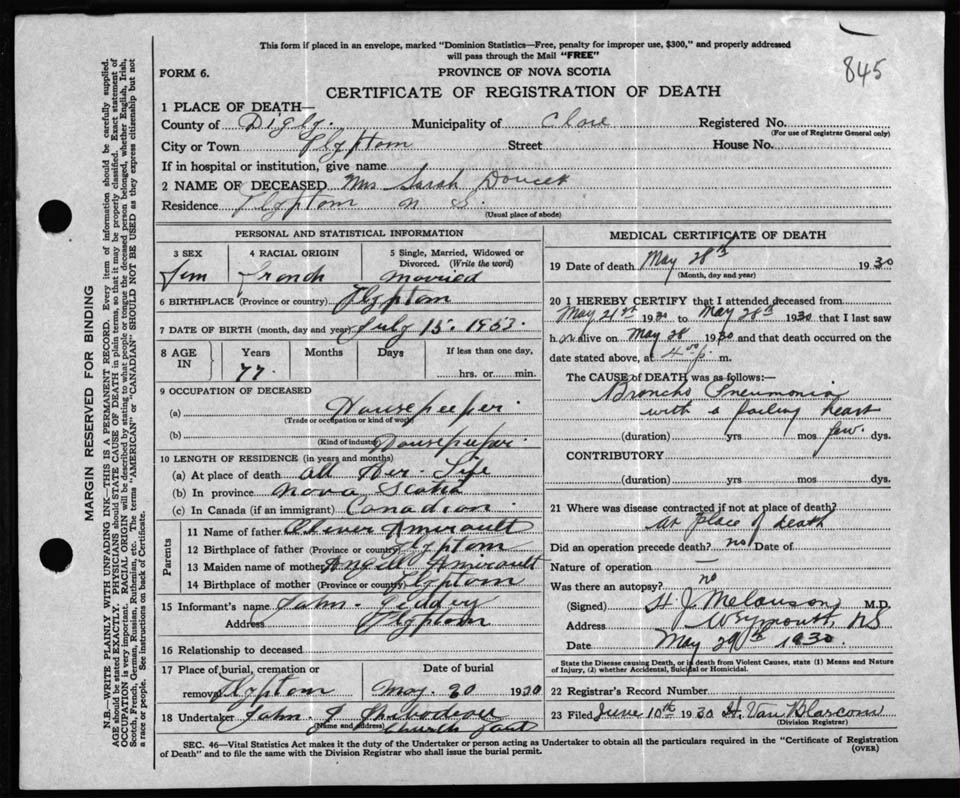 This form if placed in an envelope, marked "Dominion Statistics—Free, penalty for improper use, $300," and properly addressed
will pass through the Mail "FREE"
845
FORM 6.
PROVINCE OF NOVA SCOTIA
CERTIFICATE OF REGISTRATION OF DEATH
1 PLACE OF DEATH—
County of Digby. Municipality of Clare Registered No.
(For use of Registrar General only)
City or Town Plyptom Street House No.
If in hospital or institution, give name
2 NAME OF DECEASED Mrs Sarah Doucet
Residence Plyptom N S.
(Usual place of abode)
PERSONAL AND STATISTICAL INFORMATION
3 SEX 4 RACIAL ORIGIN 5 Single, Married, Widowed or Divorced. (Write the word)
Fem French Married
6 BIRTHPLACE (Province or country) Plyptom
7 DATE OF BIRTH (month, day and year) July 15. 1953.
8 AGE IN Years Months Days If less than one day,
77. hrs. or min.
9 OCCUPATION OF DECEASED
(a) Housepeeper.
(Trade or occupation or kind of work)
(b) Housepeeper.
(Kind of industry)
10 LENGTH OF RESIDENCE (in years and months)
(a) At place of death all Her. Life
(b) In province Nova Scotia
(c) In Canada (if an immigrant) Canadian
Parents
11 Name of father Amirault
12 Birthplace of father (Province or country) Plyptom
13 Maiden name of mother Amirault
14 Birthplace of mother (Province or country) Plyptom
15 Informant's name John.
Address Plyptom
16 Relationship to deceased
17 Place of burial, cremation or removal Plyptom
Date of burial May. 30 1930
18 Undertaker John. J
(Name and address) Church
MEDICAL CERTIFICATE OF DEATH
19 Date of death May 28th 1930
(Month, day and year)
20 I HEREBY CERTIFY that I attended deceased from
May 21st 1930 to May 28th 1930 that I last saw
h er alive on May 28 1930 and that death occurred on the
date stated above, at 4 00 p. m.
The CAUSE of DEATH was as follows:—
Broncho Pneumonia
with a failing heart
(duration) yrs mos few. dys.
CONTRIBUTORY
(duration) yrs. mos. dys.
21 Where was disease contracted if not at place of death?
at place of death
Did an operation precede death? no Date of
Nature of operation —
Was there an autopsy? no
(Signed) H J Melanson M.D.
Address Weymouth, NS
Date May 29th 1930.
State the Disease causing Death, or in death from Violent Causes, state (1) Means and Nature of Injury, and (2) whether Accidental, Suicidal or Homicidal.
22 Registrar's Record Number
23 Filed June 10th 1930 H. Van Blarcom
(Division Registrar)
SEC. 46—Vital Statistics Act makes it the duty of the Undertaker or person acting as Undertaker to obtain all the particulars required in the "Certificate of Registration
of Death" and to file the same with the Division Registrar who shall issue the burial permit. (OVER)
MARGIN RESERVED FOR BINDING
N.B.—WRITE PLAINLY WITH UNFADING INK—THIS IS A PERMANENT RECORD. Every item of information should be carefully supplied.
AGE should be stated EXACTLY. PHYSICIANS should STATE CAUSE OF DEATH in plain terms, that it may be properly classified. Exact statement of
OCCUPATION is very important. RACIAL ORIGIN will be described by stating to what people or tongue the deceased person belonged, whether English, Irish,
Scotch, French, German, Russian, Ruthenian, etc. The terms "AMERICAN" or "CANADIAN" SHOULD NOT BE USED as they express citizenship but not
a race or people. See instructions on back of Certificate.